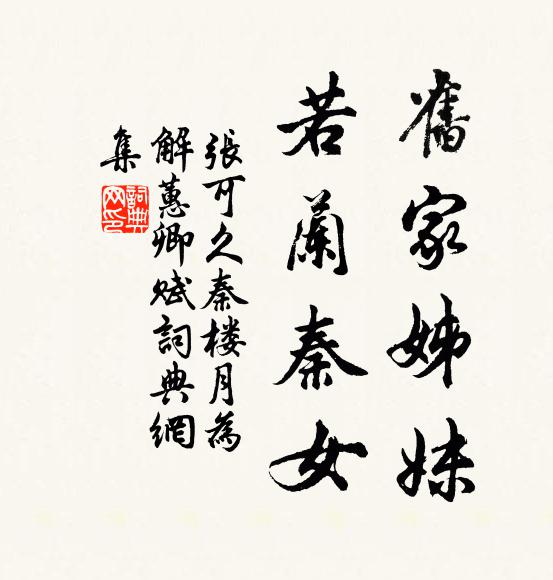 舊家姊妹
若蘭秦女
張可久秦楼月為
解蕙卿赋詞典網
集
詞典网印